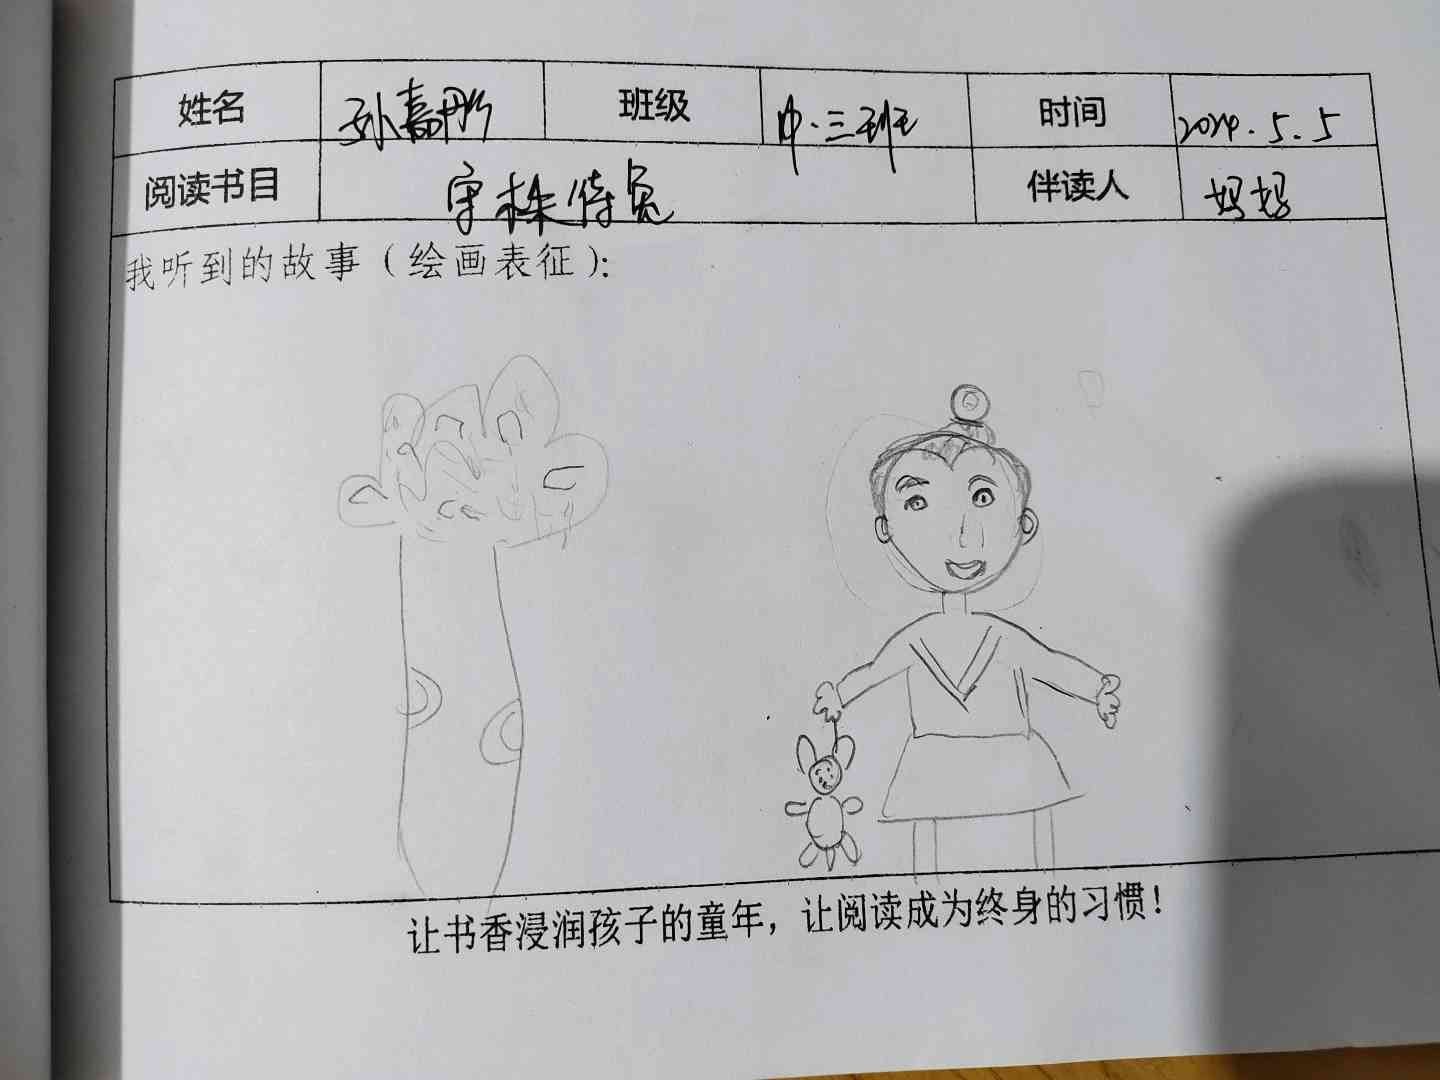 姓名 孙嘉彤 班级 中.三班 时间 2024.5.5
阅读书目 守株待兔 伴读人 妈妈
我听到的故事（绘画表征）：
让书香浸润孩子的童年，让阅读成为终身的习惯！